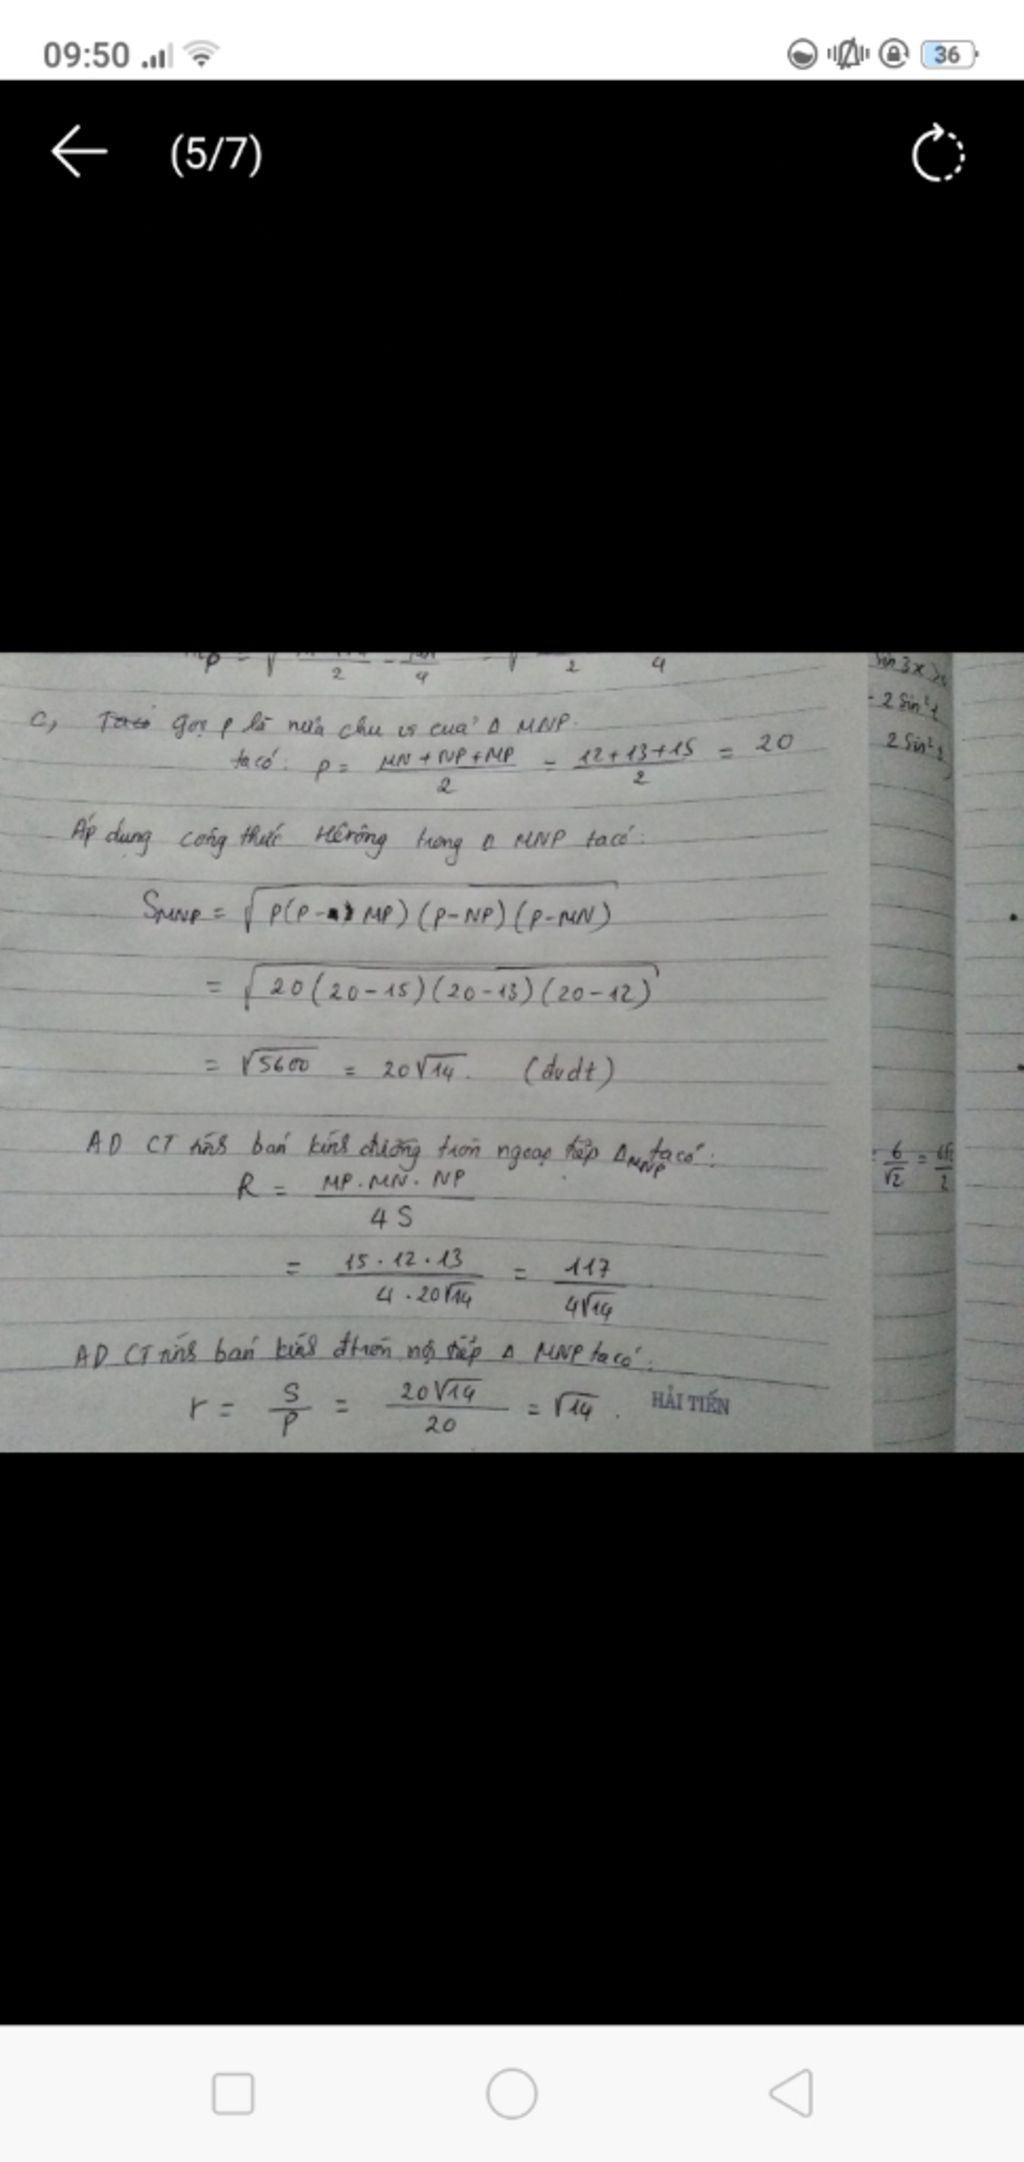 09:50
36
(5/7)
c, Ta có gọi p là nửa chu vi của Δ MNP.
ta có: p = MN + NP + MP / 2 = 12+13+15 / 2 = 20
Áp dụng công thức Hêrông trong Δ MNP ta có:
S_MNP = √p(p- MP)(p-NP)(p-MN)
= √20(20-15)(20-13)(20-12)
= √5600 = 20√14. (đvdt)
AD CT tính bán kính đường tròn ngoại tiếp Δ MNP ta có:
R = MP.MN.NP / 4S
= 15.12.13 / 4.20√14 = 117 / 4√14
AD CT tính bán kính đtròn nội tiếp Δ MNP ta có:
r = S/P = 20√14 / 20 = √14.
HẢI TIẾN
sin 3x
- 2 sin²
2 sin²
6/√2 =